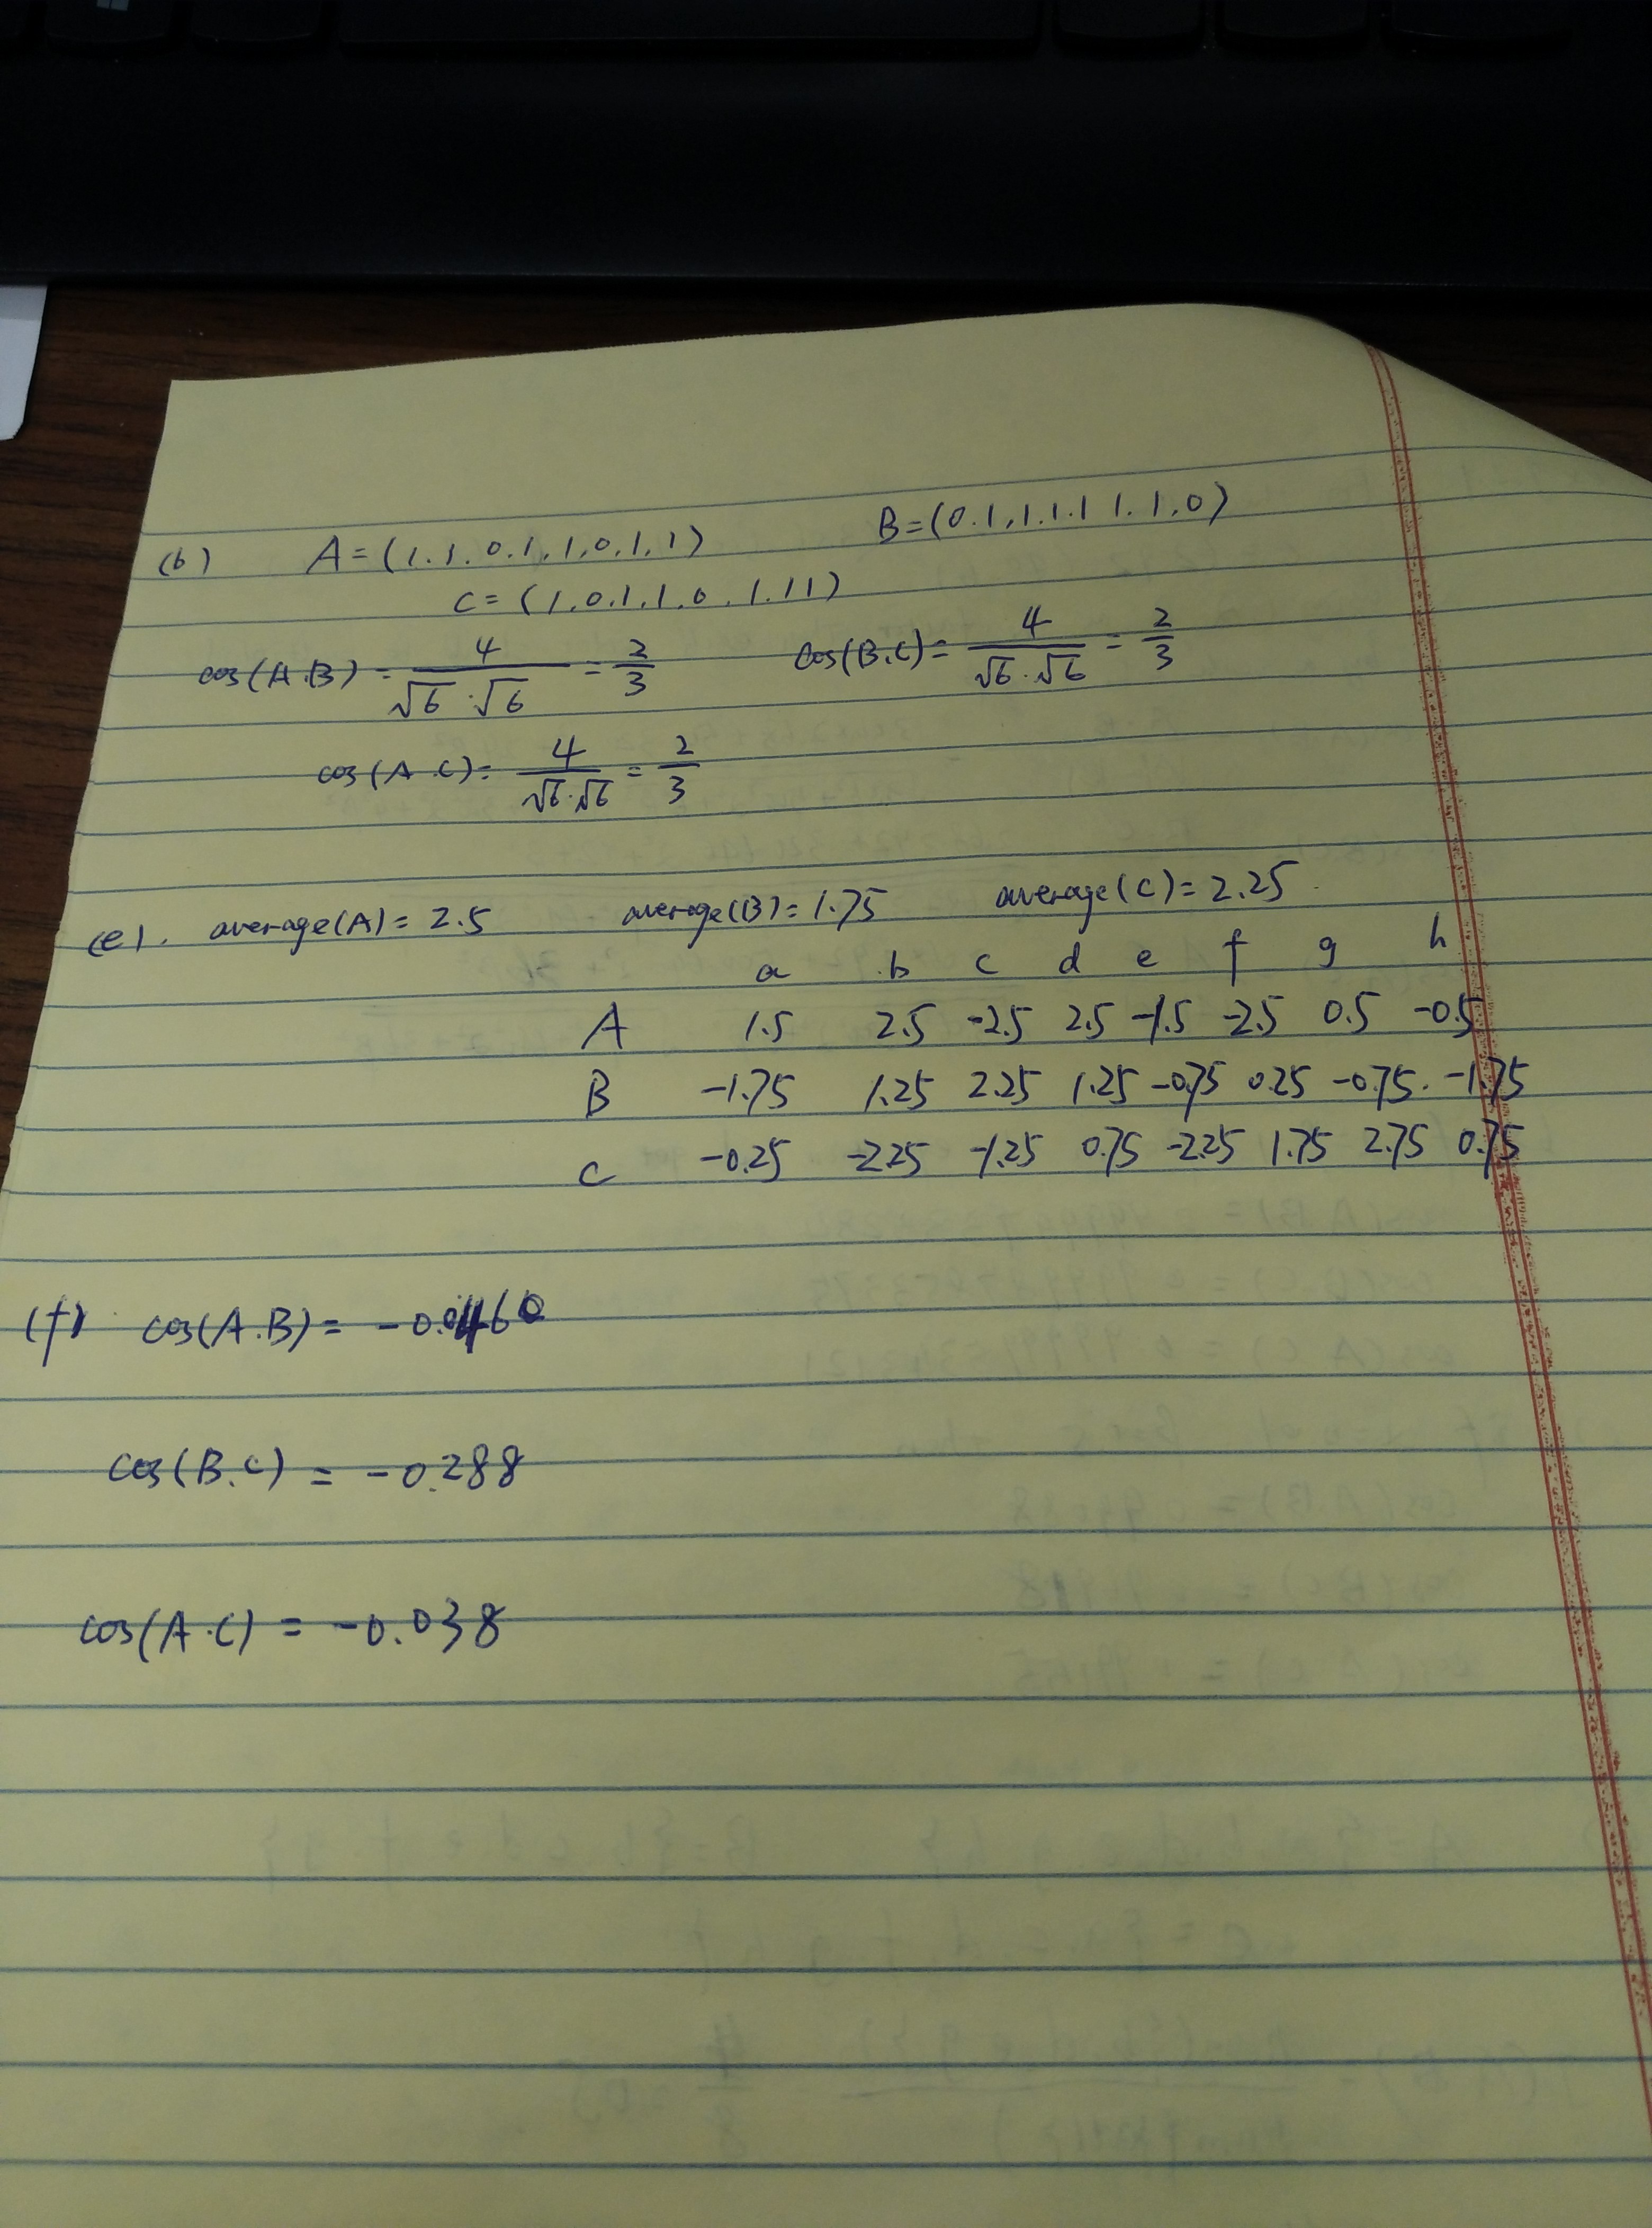 (b) A=(1.1.0.1.1,0,1,1) B=(0.1,1.1.1 1.1,0)
C=(1.0.1.1.0.1.11)
cos(A.B)= 4/√6·√6 = 2/3 cos(B.C)= 4/√6·√6 = 2/3
cos(A.C)= 4/√6·√6 = 2/3
(e). average(A)=2.5 average(B)=1.75 average(C)=2.25.
a b c d e f g h
A 1.5 2.5 -2.5 2.5 -1.5 -2.5 0.5 -0.5
B -1.75 1.25 2.25 1.25 -0.75 0.25 -0.75. -1.75
C -0.25 -2.25 -1.25 0.75 -2.25 1.75 2.75 0.75
(f) cos(A.B)= -0.0460
cos(B.C) = -0.288
cos(A.C) = -0.038